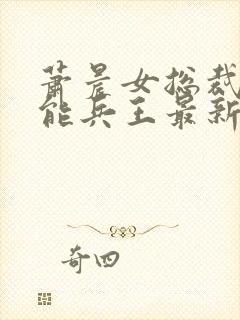 萧晨女总裁
能兵王最新
奇四